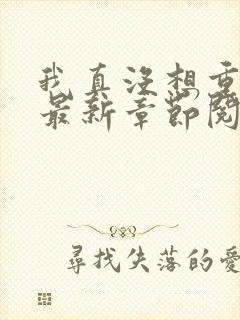 我真没想重
最新章节阅
尋找失落的愛